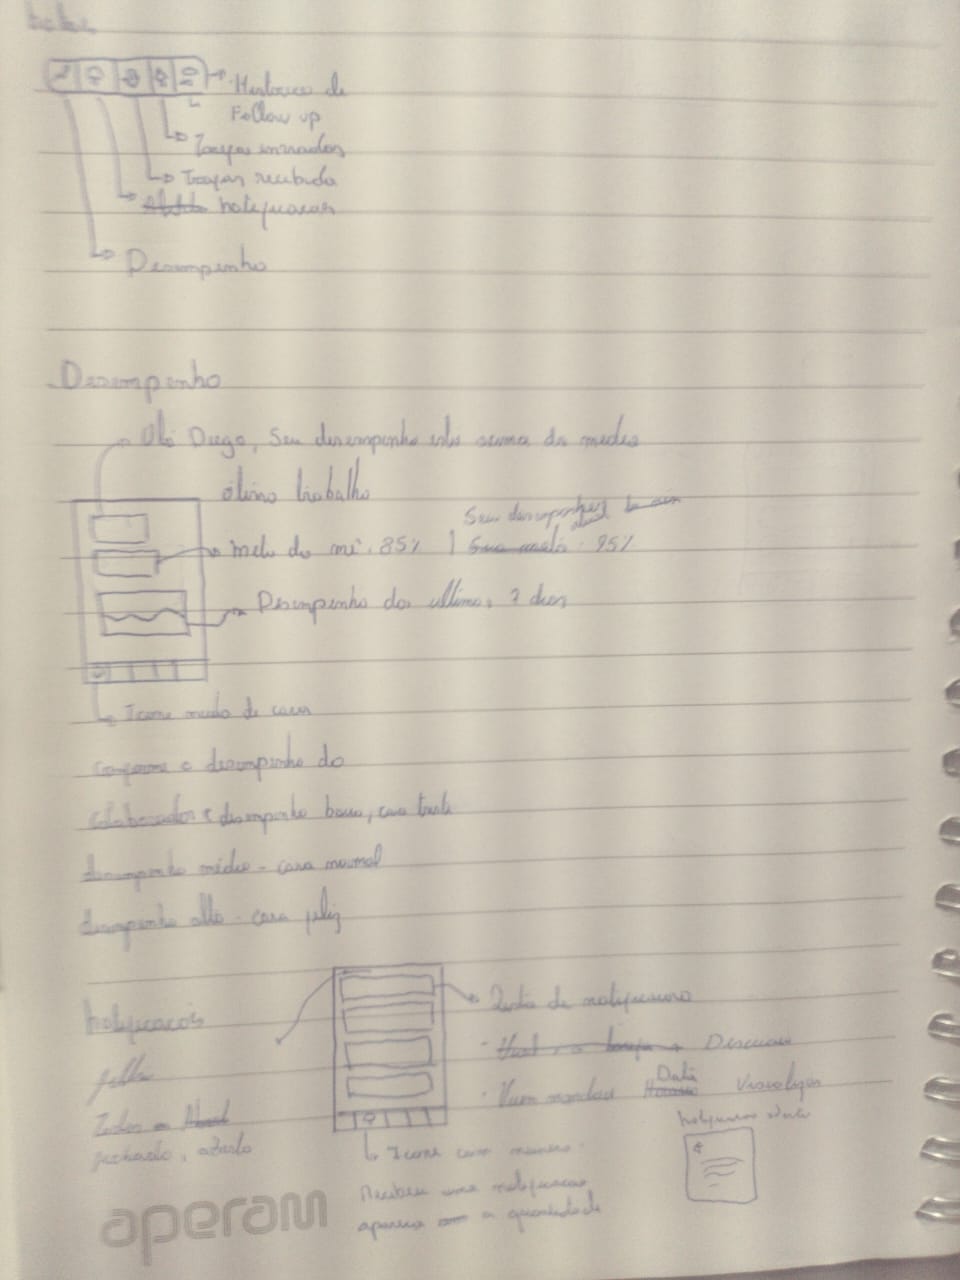 Historico de
Follow up
Tarefas enviadas
Tarefas recebida
notificacoes
Desempenho
Desempenho
Olá Diego, Seu desempenho esta acima da media
ótimo trabalho
Seu desempenho
Meta do mês. 85% | 95%
Desempenho dos ultimos 7 dias
Icone muda de cara
conforme o desempenho do
colaborador desempenho baixo, cara triste
desempenho médio - cara normal
desempenho alto - cara feliz
notificacoes
Lista de notificacoes
Descricao
Quem mandou Data Visualizar
fechado, aberto
notificacao aberta
Icone com numero
Recebeu uma notificacao
aparece a quantidade
aperam